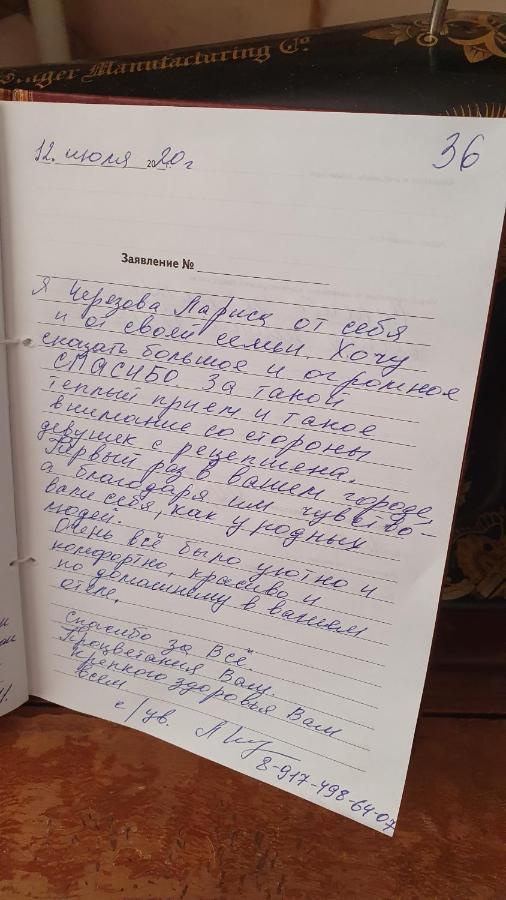 Singer Manufacturing Co
12. июля 2020 г
36
Заявление №
Я Черезова Лариса от себя
и от своей семьи. Хочу
сказать большое и огромное
СПАСИБО за такой
теплый прием и такое
внимание со стороны
девушек с рецепшена.
Первый раз в вашем городе,
а благодаря им чувство-
вали себя, как у родных
людей.
Очень всё было уютно и
комфортно, красиво и
по домашнему в вашем
отеле.
Спасибо за Всё
Процветания Вам
крепкого здоровья Вам
всем
с/ув.
8-917-498-64-07